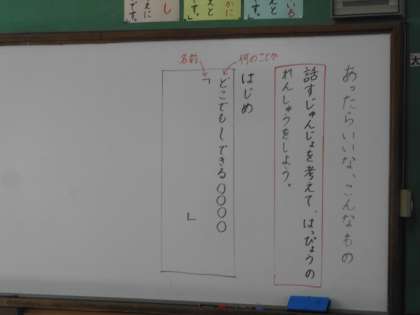 あったらいいな、こんなもの
話すじゅんじょを考えて、はっぴょうの
れんしゅうをしよう。
はじめ
何のことか
どこでも〜できる〇〇〇〇
名前
「 」